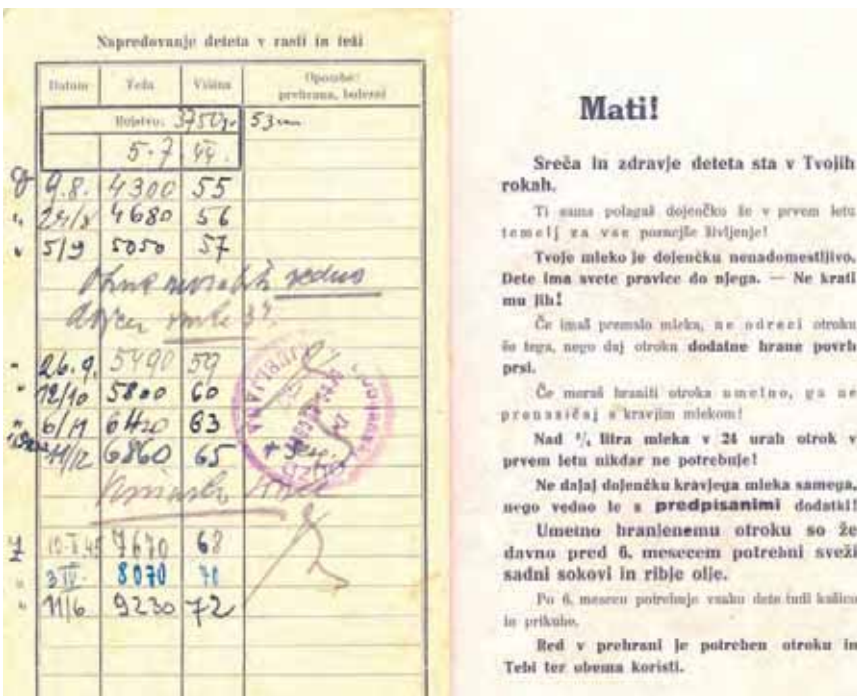 Napredovanje deteta v rasti in teži
Datum Teža Višina Opombe: prehrana, bolezni
Rojstvo: 3750 gr. 53 cm
5. 7 44.
9.8. 4300 55
24/8 4680 56
5/9 5050 57
redno
26.9. 5490 59
12/10 5800 60
6/11 6420 63
11/12 6860 65
LJUBLJANA
7670 68
3/IV. 8070 70
11/6 9230 72
Mati!
Sreča in zdravje deteta sta v Tvojih
rokah.
Ti sama polagaš dojenčku še v prvem letu
temelj za vse poznejše življenje!
Tvoje mleko je dojenčku nenadomestljivo.
Dete ima svete pravice do njega. — Ne krati
mu jih!
Če imaš premalo mleka, ne odreci otroku
še tega, nego daj otroku dodatne hrane povrh
prsi.
Če moraš hraniti otroka umetno, ga ne
prenasičaj s kravjim mlekom!
Nad ³/₄ litra mleka v 24 urah otrok v
prvem letu nikdar ne potrebuje!
Ne dajaj dojenčku kravjega mleka samega,
nego vedno le s predpisanimi dodatki!
Umetno hranjenemu otroku so že
davno pred 6. mesecem potrebni sveži
sadni sokovi in ribje olje.
Po 6. mesecu potrebuje vsako dete tudi kašico
in prikuho.
Red v prehrani je potreben otroku in
Tebi ter obema koristi.